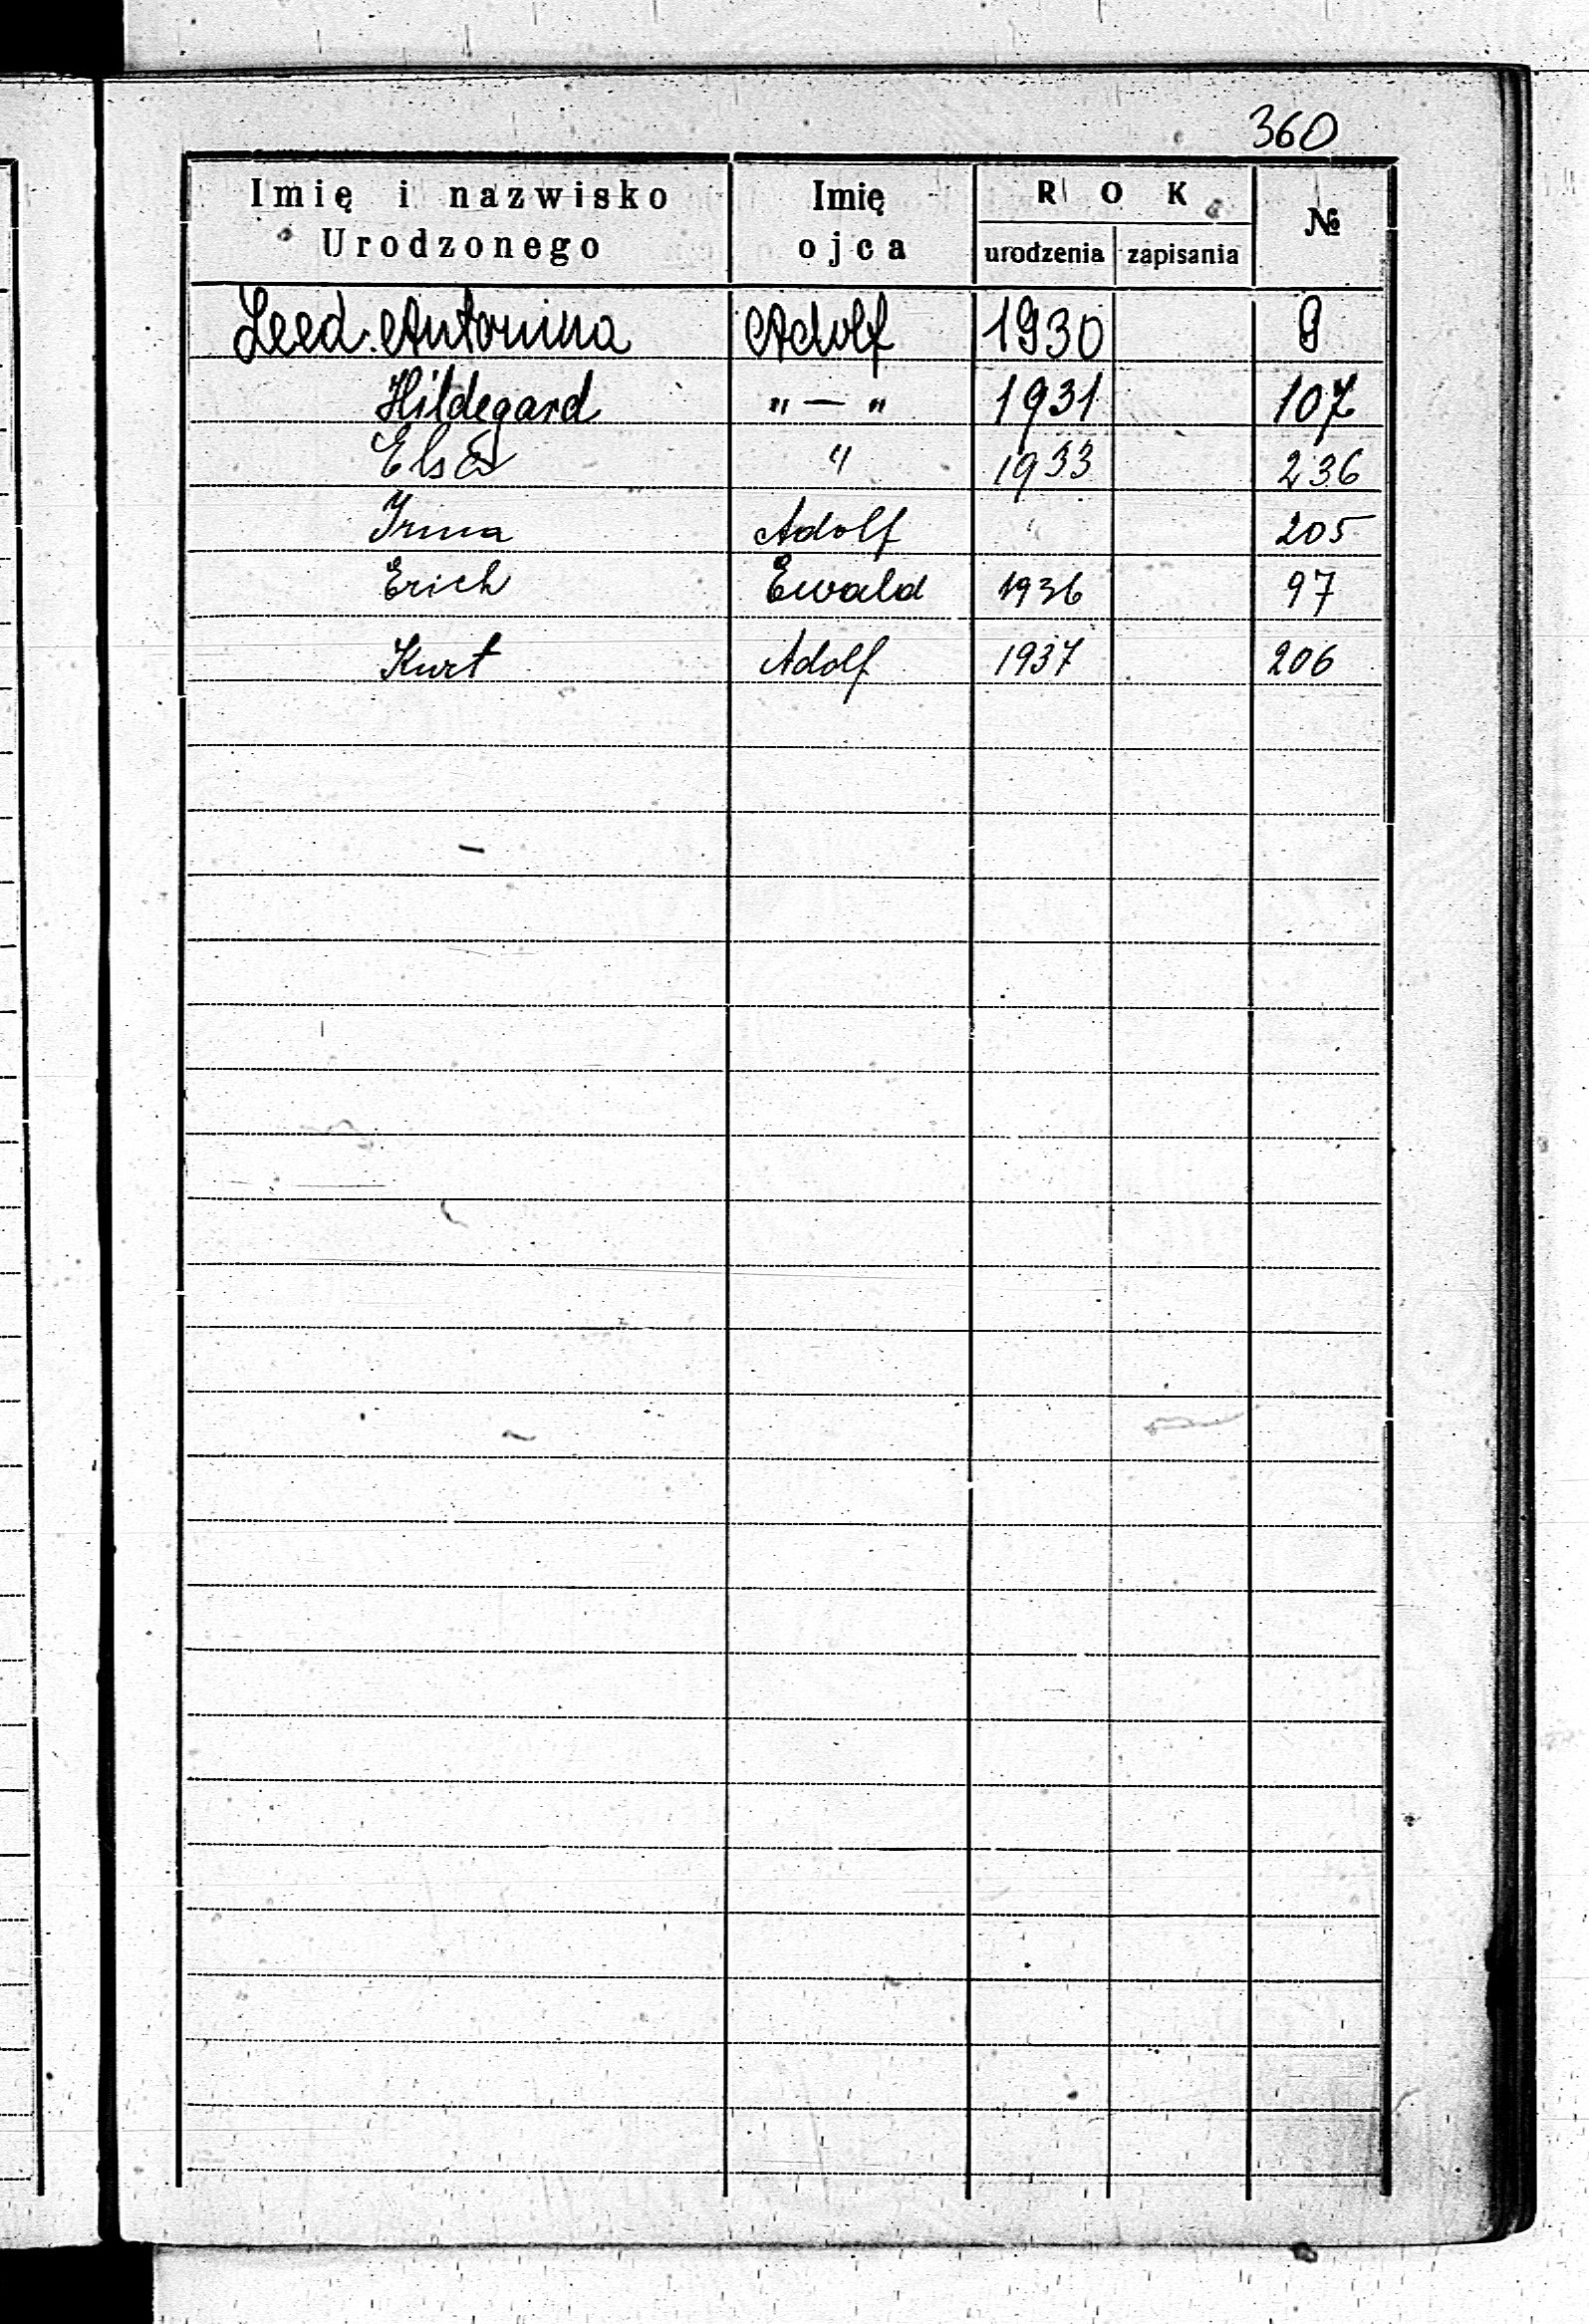 360
Imię i nazwisko Urodzonego Imię ojca ROK urodzenia zapisania №
Leed. Antonina Adolf 1930 9
Hildegard " — " 1931 107
Elsa " 1933 236
Irma Adolf " 205
Erich Ewald 1936 97
Kurt Adolf 1937 206